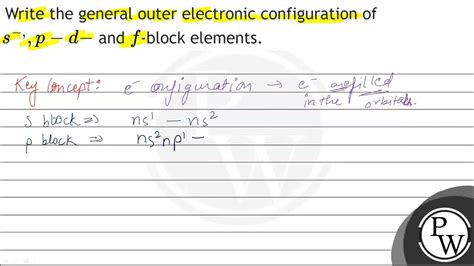 Write the general outer electronic configuration of
s⁻,, p − d− and f-block elements.
Key Concept: e⁻ configuration → e⁻ are filled
in the orbitals.
s block ⇒ ns¹ − ns²
p block ⇒ ns²np¹ −
P
W